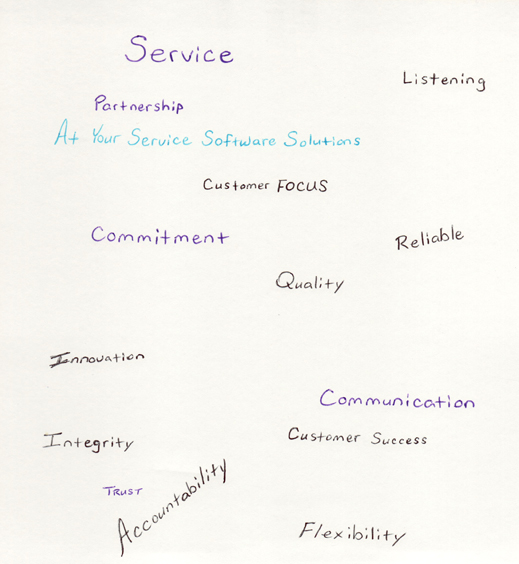 Service
Listening
Partnership
At Your Service Software Solutions
Customer FOCUS
Commitment
Reliable
Quality
Innovation
Communication
Integrity
Customer Success
TRUST
Accountability
Flexibility